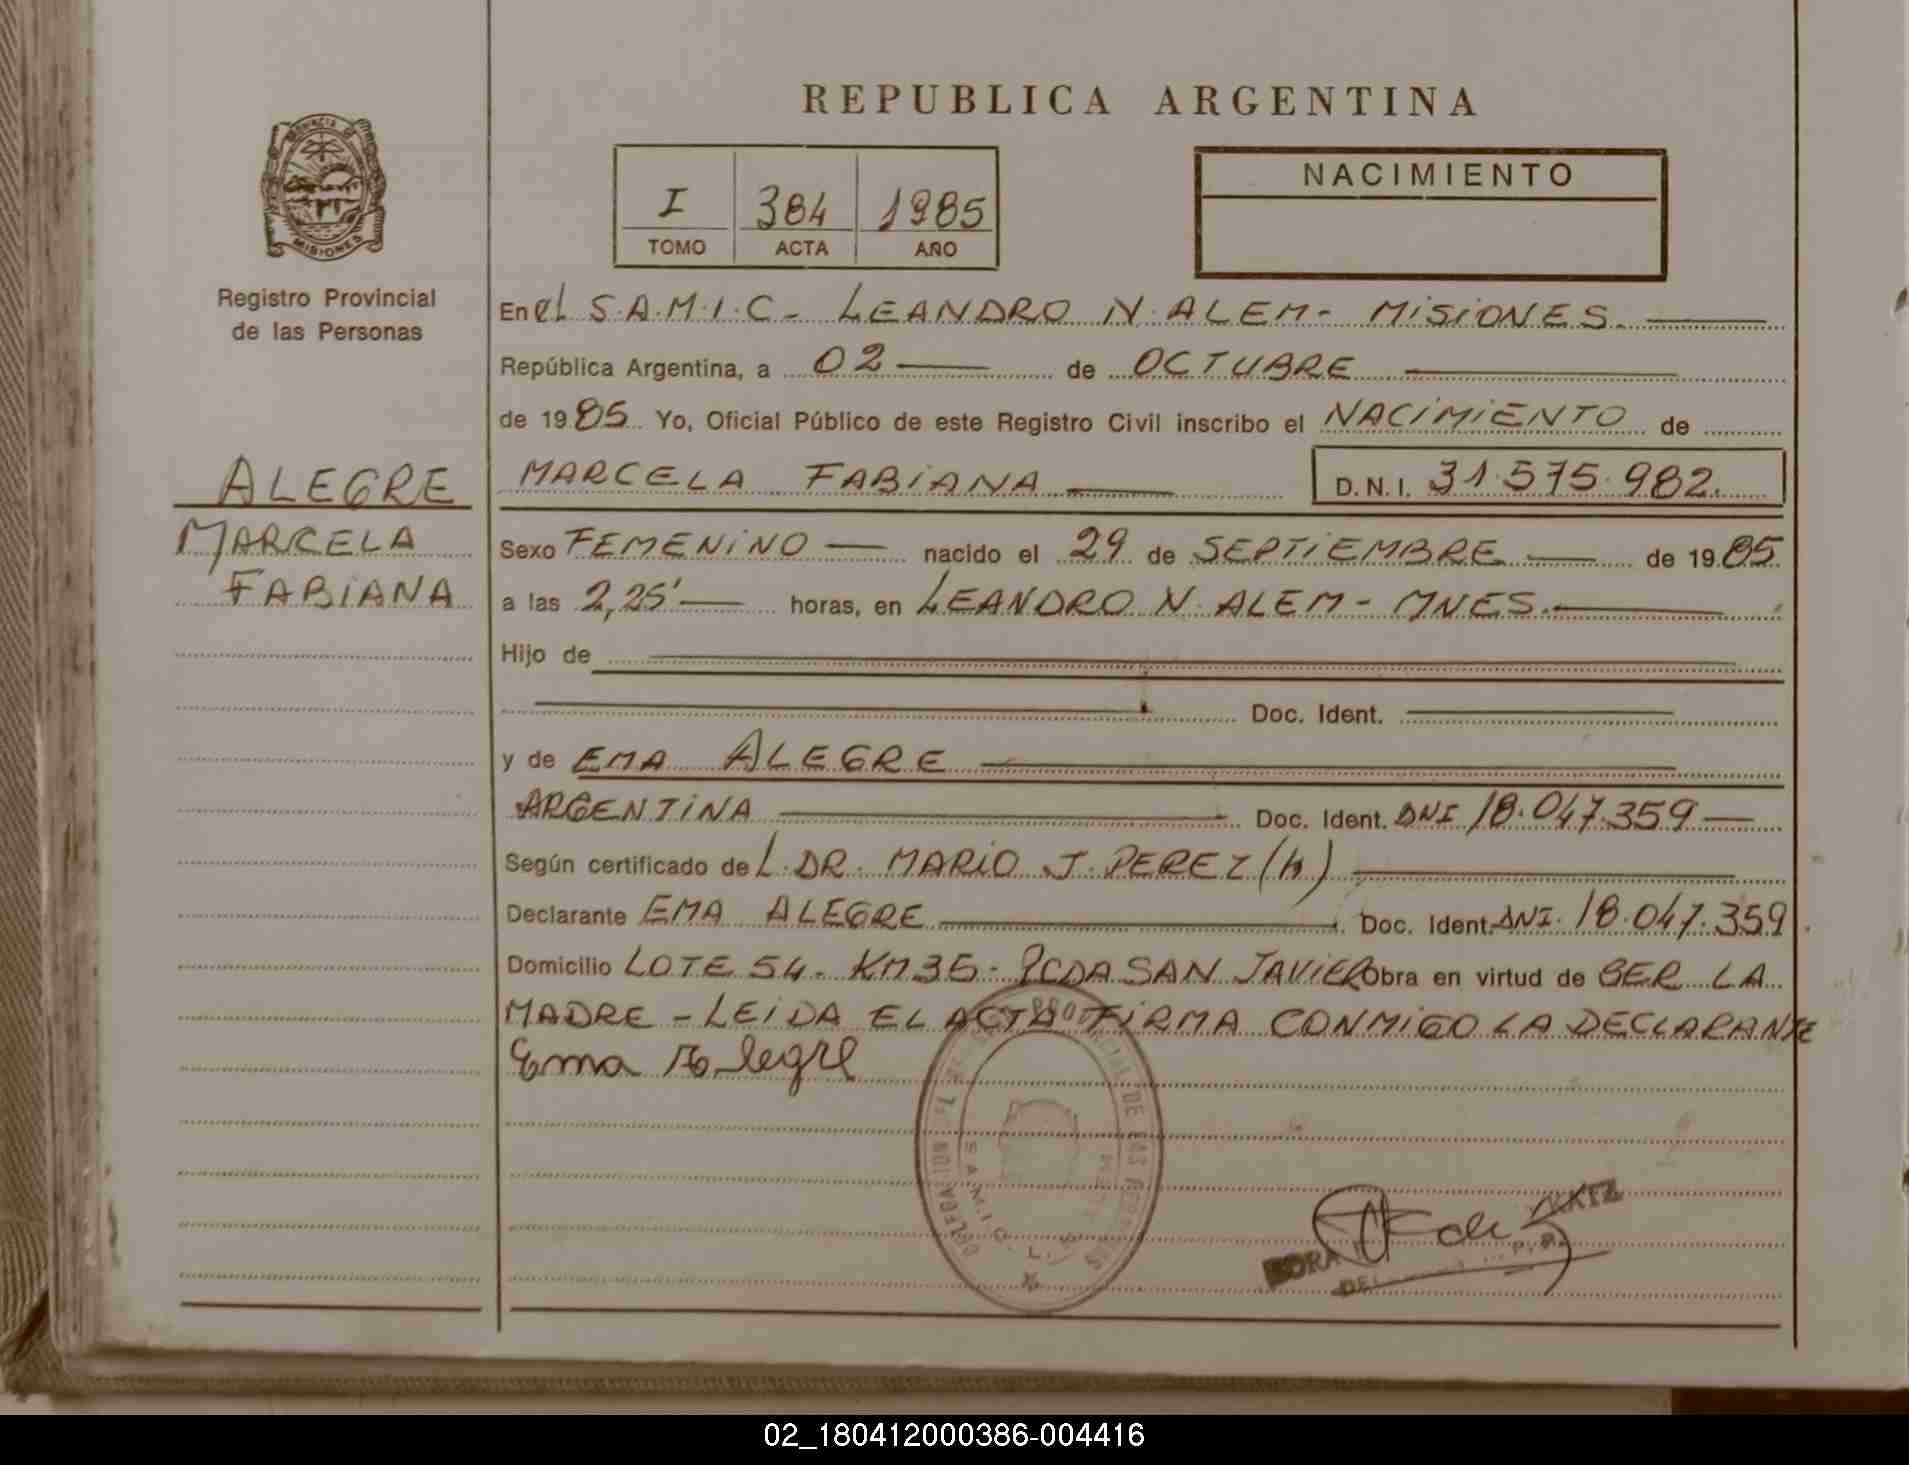 REPUBLICA ARGENTINA
PROVINCIA DE
MISIONES
Registro Provincial
de las Personas
I 384 1985
TOMO ACTA AÑO
NACIMIENTO
En el S.A.M.I.C- LEANDRO N. ALEM- MiSiONES.
República Argentina, a 02 de OCTUBRE
de 1985 Yo, Oficial Público de este Registro Civil inscribo el NACiMiENTO de
ALEGRE
MARCELA
FABiANA
MARCELA FABiANA D.N.I. 31.575.982.
Sexo FEMENiNO nacido el 29 de SEPTiEMBRE de 1985
a las 2,25' horas, en LEANDRO N. ALEM - MNES.
Hijo de
Doc. Ident.
y de EMA ALEGRE
ARGENTiNA Doc. Ident. DNI 18.047.359
Según certificado de L. DR. MARiO J. PEREZ (h)
Declarante EMA ALEGRE Doc. Ident. DNI. 18.047.359
Domicilio LOTE 54- KM35- PCDA SAN JAViER Obra en virtud de SER LA
MADRE - LEiDA EL ACTA FiRMA CONMiGO LA DECLARANTE
Ema Alegre
DE LAS
DELEGACION
S.A.M.I.C. L.
02_180412000386-004416